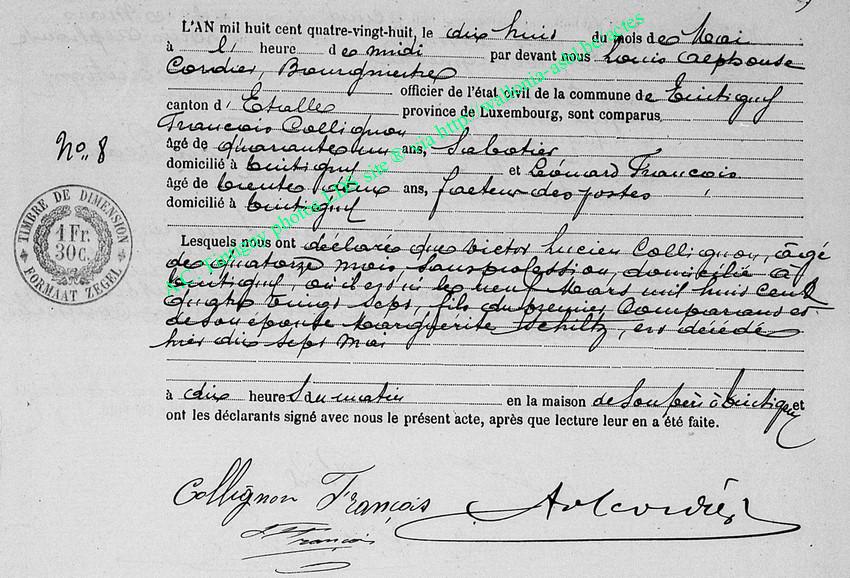 L'AN mil huit cent quatre-vingt-huit, le dix huit du mois de Mai
à l' heure de midi par devant nous Louis Alphonse
Cordier, Bourgmestre
officier de l'état civil de la commune de Tintigny
canton d'Etalle province de Luxembourg, sont comparus
François Collignon
âgé de quarante un ans, Sabotier
domicilié à tintigny et Léonard François
âgé de trente deux ans, facteur des postes
domicilié à tintigny
Lesquels nous ont déclaré que Victor Lucien Collignon, âgé
de quatorze mois, sans profession, domicilié à
tintigny, où il est né le neuf Mars mil huit cent
quatre vingt sept, fils du premier Comparant et
de son épouse Marguerite Schiltz, est décédé
hier dix sept Mai
à dix heures du matin en la maison de son père à tintigny et
ont les déclarants signé avec nous le présent acte, après que lecture leur en a été faite.
No. 8
TIMBRE DE DIMENSION
1 Fr.
30 C.
FORMAAT ZEGEL
A.C. Tintigny photos LDS site ® via http://wallonia-asbl.be/actes
Collignon François
François